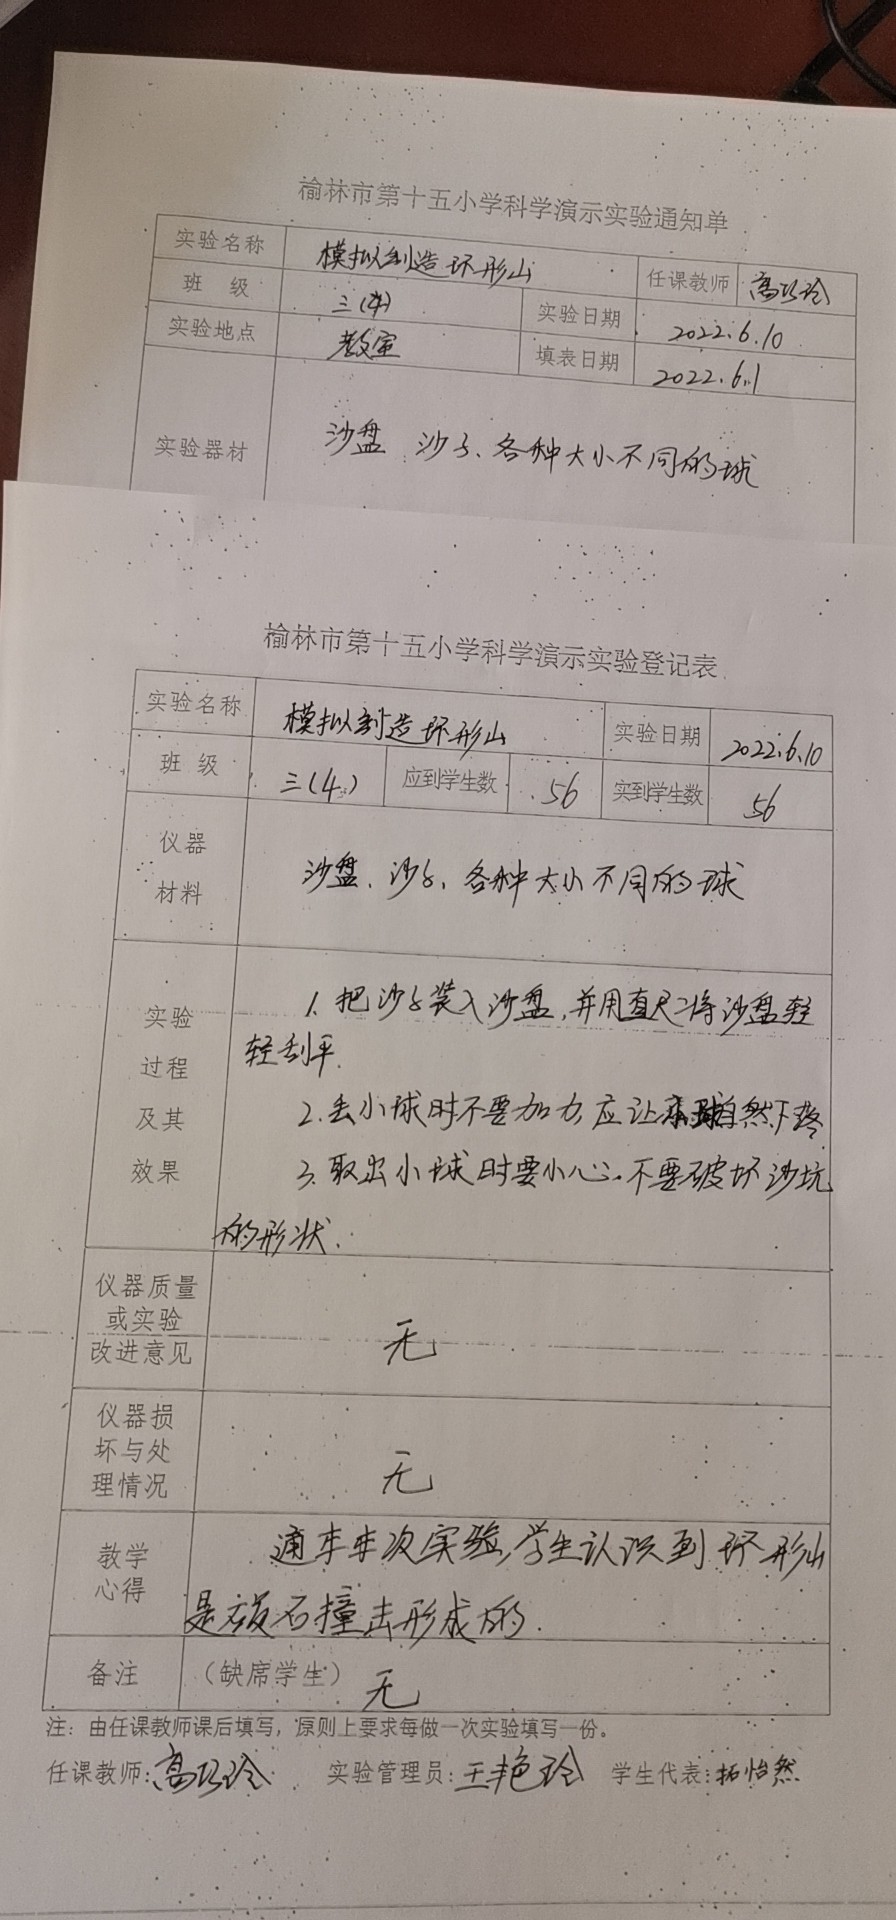 榆林市第十五小学科学演示实验通知单
实验名称 模拟制造环形山 任课教师 高巧玲
班 级 三(4) 实验日期 2022.6.10
实验地点 教室 填表日期 2022.6.1
实验器材 沙盘、沙子、各种大小不同的球
榆林市第十五小学科学演示实验登记表
实验名称 模拟制造环形山 实验日期 2022.6.10
班 级 三(4) 应到学生数 56 实到学生数 56
仪器
材料
沙盘、沙子、各种大小不同的球
实验
过程
及其
效果
1. 把沙子装入沙盘,并用直尺将沙盘轻
轻刮平.
2. 丢小球时不要加力,应让小球自然下落
3. 取出小球时要小心.不要破坏沙坑
的形状.
仪器质量
或实验
改进意见
无
仪器损
坏与处
理情况
无
教学
心得
通本次实验,学生认识到环形山
是陨石撞击形成的.
备注 (缺席学生) 无
注:由任课教师课后填写,原则上要求每做一次实验填写一份。
任课教师:高巧玲 实验管理员:王艳玲 学生代表:拓怡然